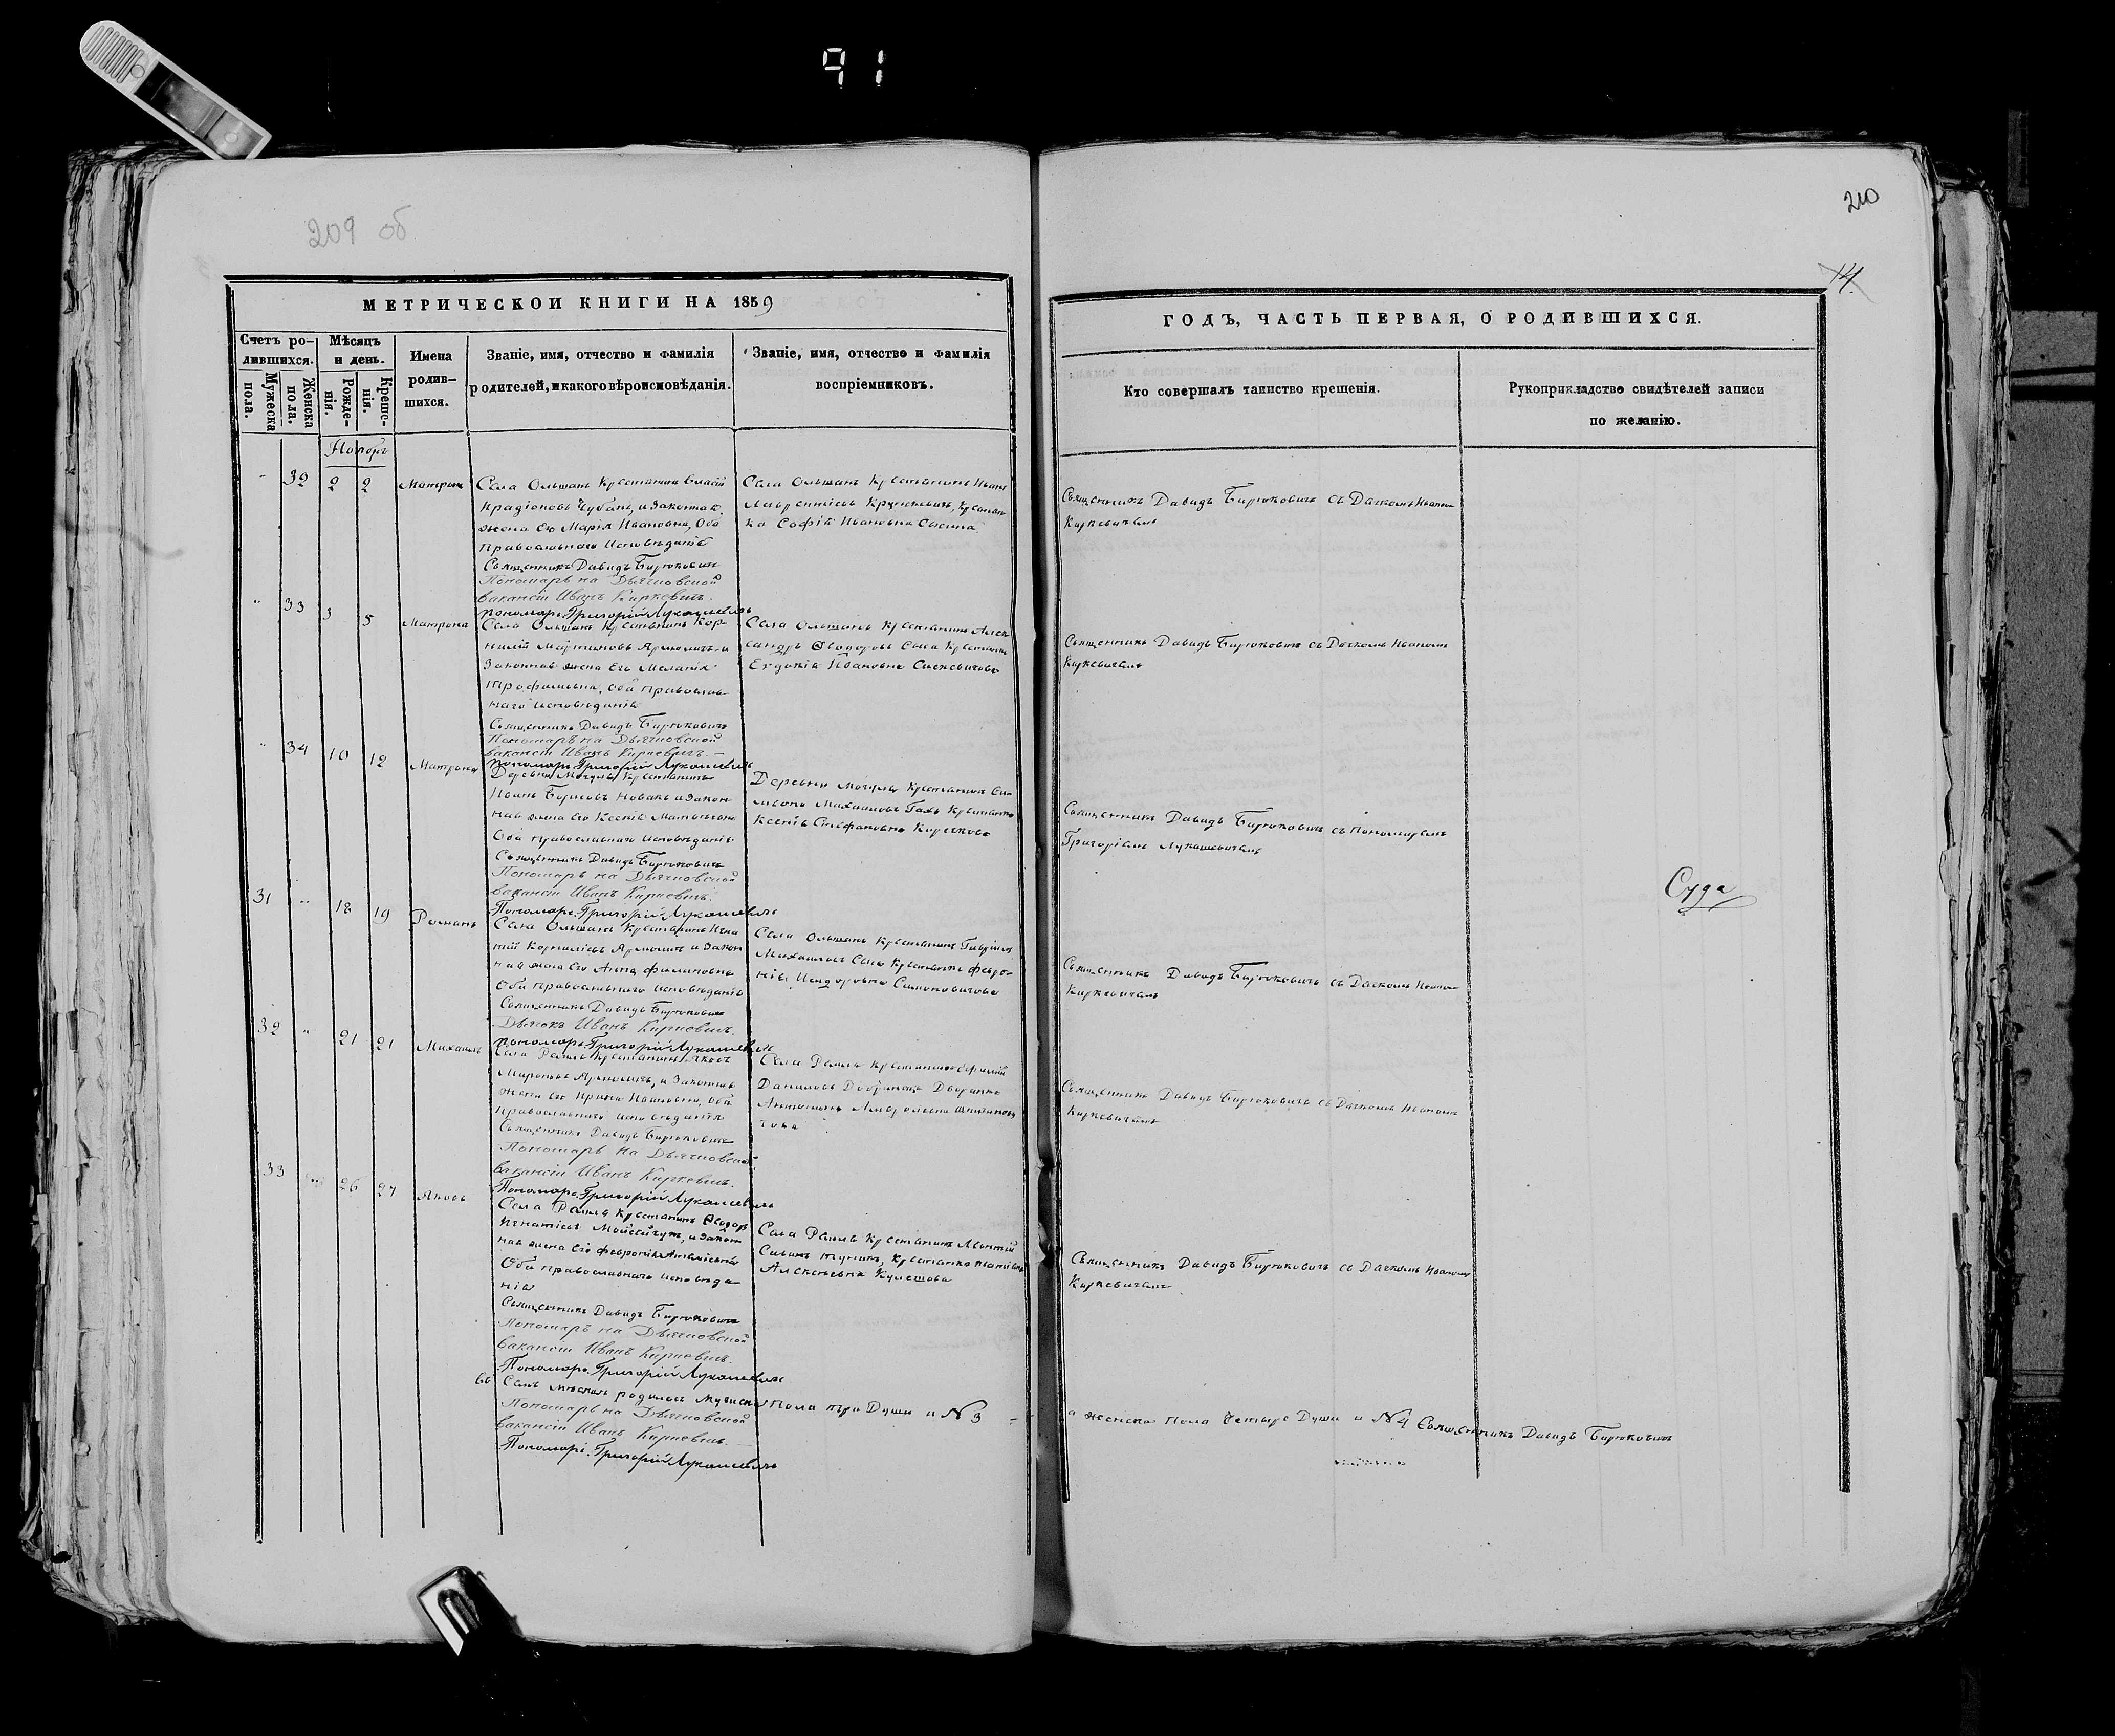 91
209 об
210
14.
МЕТРИЧЕСКОЙ КНИГИ НА 1859
ГОДЪ, ЧАСТЬ ПЕРВАЯ, О РОДИВШИХСЯ.
Счетъ родившихся.
Мужеска пола.
Женска пола.
Мѣсяцъ и день.
Рожденія.
Крещенія.
Имена родив-
шихся.
Званіе, имя, отчество и фамилія
родителей, и какого вѣроисповѣданія.
Званіе, имя, отчество и фамилія
воспріемниковъ.
Кто совершалъ таинство крещенія.
Рукоприкладство свидѣтелей записи
по желанію.
Ноябрь
" 32 2 2 Матрона
Села Ольшанъ Крестьянинъ
Чубанъ, и Законная
жена Его Марія Ивановна, Оба
Православнаго Исповѣданія
Священникъ Давидъ Бирюковичъ
Пономарь на Дьячковской
вакансіи Иванъ Киркевичъ.
Пономарь Григорій Лукашевичъ
Села Ольшанъ Крестьянинъ Иванъ
Лаврентіевъ Кручкевичъ, Крестьян-
ка Софія Ивановна
Священникъ Давидъ Бирюковичъ съ Дячкомъ Иваномъ
Киркевичемъ
" 33 3 5 Матрона
Села Ольшанъ Крестьянинъ Кор-
нилій Мартиновъ Ярмоличъ и
Законная жена Его Меланія
Трофимовна, Оба Православ-
наго Исповѣданія
Священникъ Давидъ Бирюковичъ
Пономарь на Дьячковской
вакансіи Иванъ Киркевичъ.
Пономарь Григорій Лукашевичъ
Села Ольшанъ Крестьянинъ Алек-
сандръ Ѳеодоровъ Сыса Крестьянка
Евдокія Ивановна
Священникъ Давидъ Бирюковичъ съ Дячкомъ Иваномъ
Киркевичемъ
" 34 10 12 Матрона
Деревни Крестьянинъ
Иванъ Борисовъ Новакъ и Закон-
ная жена Его Ксенія Матвѣевна
Оба Православнаго Исповѣданія
Священникъ Давидъ Бирюковичъ
Пономарь на Дьячковской
вакансіи Иванъ Киркевичъ.
Пономарь Григорій Лукашевичъ
Деревни Крестьянинъ Си-
меонъ Михаиловъ Крестьянка
Ксенія Стефановна
Священникъ Давидъ Бирюковичъ съ Пономаремъ
Григоріемъ Лукашевичемъ
Суда
31 " 18 19 Романъ
Села Ольшанъ Крестьянинъ Игна-
тій Корниліевъ Ярмоличъ и Закон-
ная жена Его Анна Филиповна
Оба Православнаго Исповѣданія
Священникъ Давидъ Бирюковичъ
Дьячокъ Иванъ Киркевичъ.
Пономарь Григорій Лукашевичъ
Села Ольшанъ Крестьянинъ Гавріилъ
Михаиловъ Сыса Крестьянка Февро-
нія Симоновичова
Священникъ Давидъ Бирюковичъ съ Дячкомъ Иваномъ
Киркевичемъ
32 " 21 21 Михаилъ
Села Крестьянинъ Яковъ
Мироновъ Ярмоличъ, и Законная
жена Его Ирина Ивановна, Оба
Православнаго Исповѣданія
Священникъ Давидъ Бирюковичъ
Пономарь на Дьячковской
вакансіи Иванъ Киркевичъ.
Пономарь Григорій Лукашевичъ
Села Крестьянинъ
Даниловъ Дворянка
Священникъ Давидъ Бирюковичъ съ Дячкомъ Иваномъ
Киркевичемъ
33 26 27 Яковъ
Села Крестьянинъ Ѳеодоръ
Игнатіевъ Мойсейчукъ, и Закон-
ная жена Его Февронія
Оба Православнаго Исповѣда-
нія
Священникъ Давидъ Бирюковичъ
Пономарь на Дьячковской
вакансіи Иванъ Киркевичъ.
Пономарь Григорій Лукашевичъ
Села Крестьянинъ Леонтій
Савинъ Крестьянка
Алексѣевна Кулешова
Священникъ Давидъ Бирюковичъ съ Дячкомъ Иваномъ
Киркевичемъ
Въ Семъ мѣсяцѣ родилось Мужеска Пола три Души и №3
а женска Пола Четыре Души и №4 Священникъ Давидъ Бирюковичъ
Пономарь на Дьячковской
вакансіи Иванъ Киркевичъ.
Пономарь Григорій Лукашевичъ